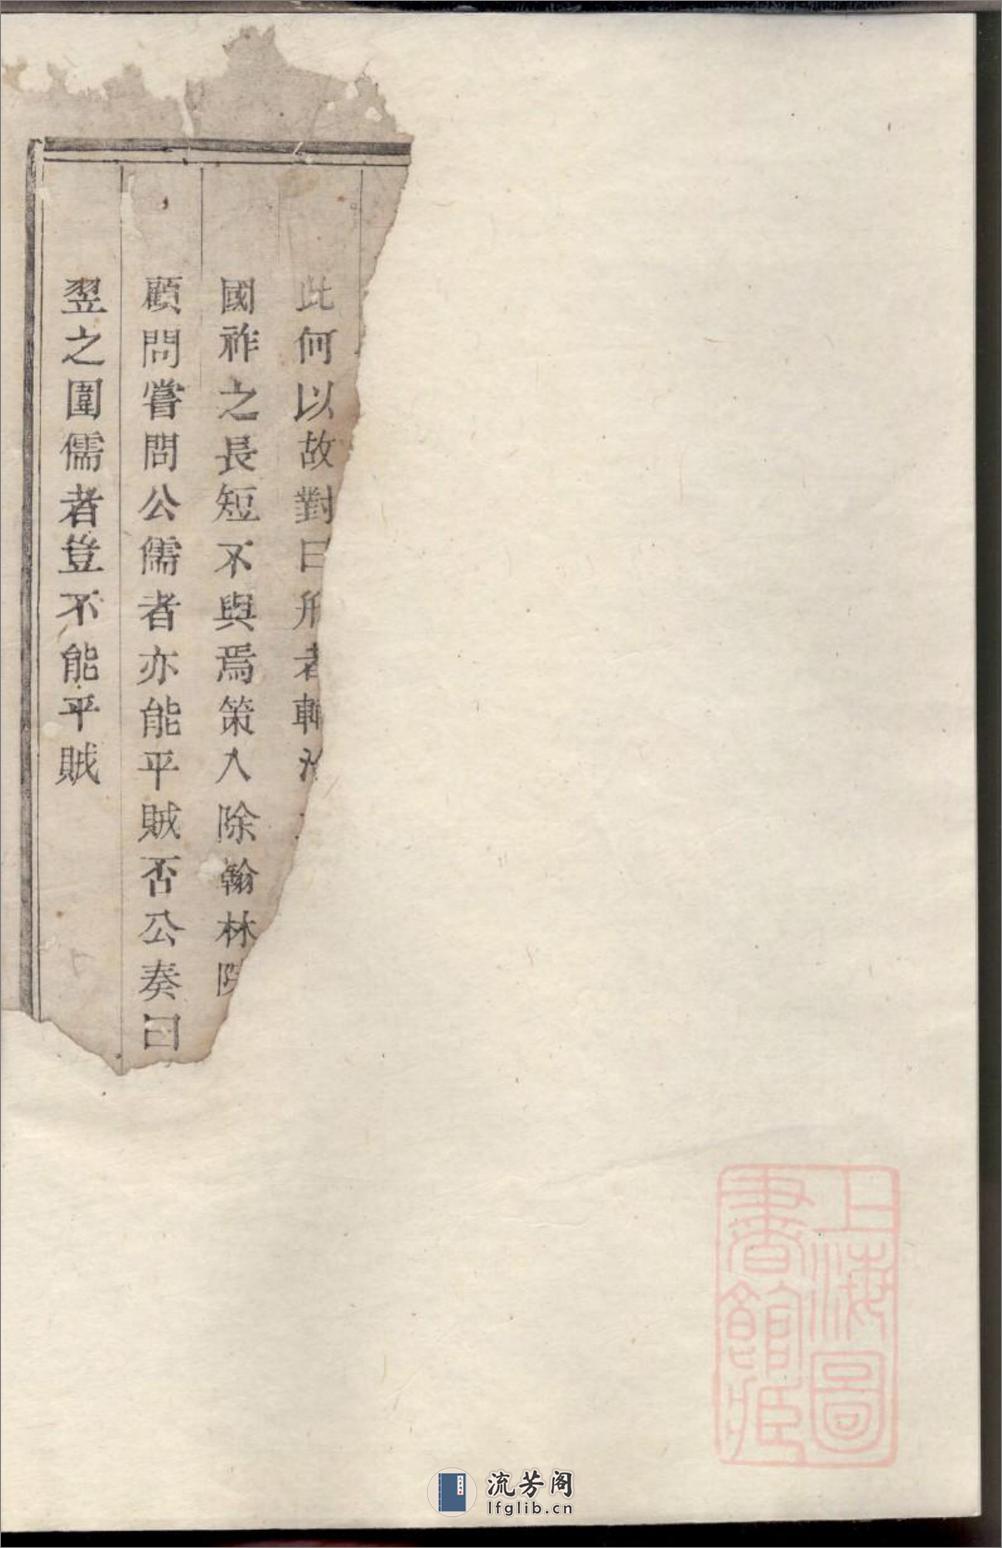 此何以故對曰刑者輔治
國祚之長短不與焉策入除翰林院
顧問嘗問公儒者亦能平賊否公奏曰
翌之圍儒者豈不能平賊
上海圖
書館藏
流芳阁
lfglib.cn